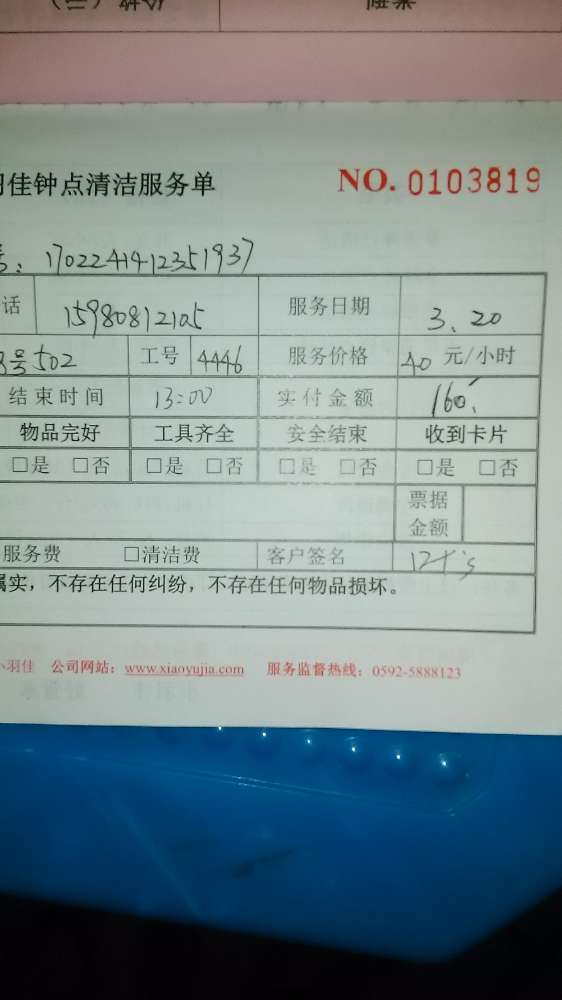 佳钟点清洁服务单 NO. 0103819
号: 1702241412351937
话 15980812105 服务日期 3.20
号502 工号 4446 服务价格 40 元/小时
结束时间 13:00 实付金额 160.
物品完好 工具齐全 安全结束 收到卡片
□是 □否 □是 □否 □是 □否 □是 □否
票据
金额
服务费 □清洁费 客户签名
属实，不存在任何纠纷，不存在任何物品损坏。
小羽佳 公司网站：www.xiaoyujia.com 服务监督热线：0592-5888123